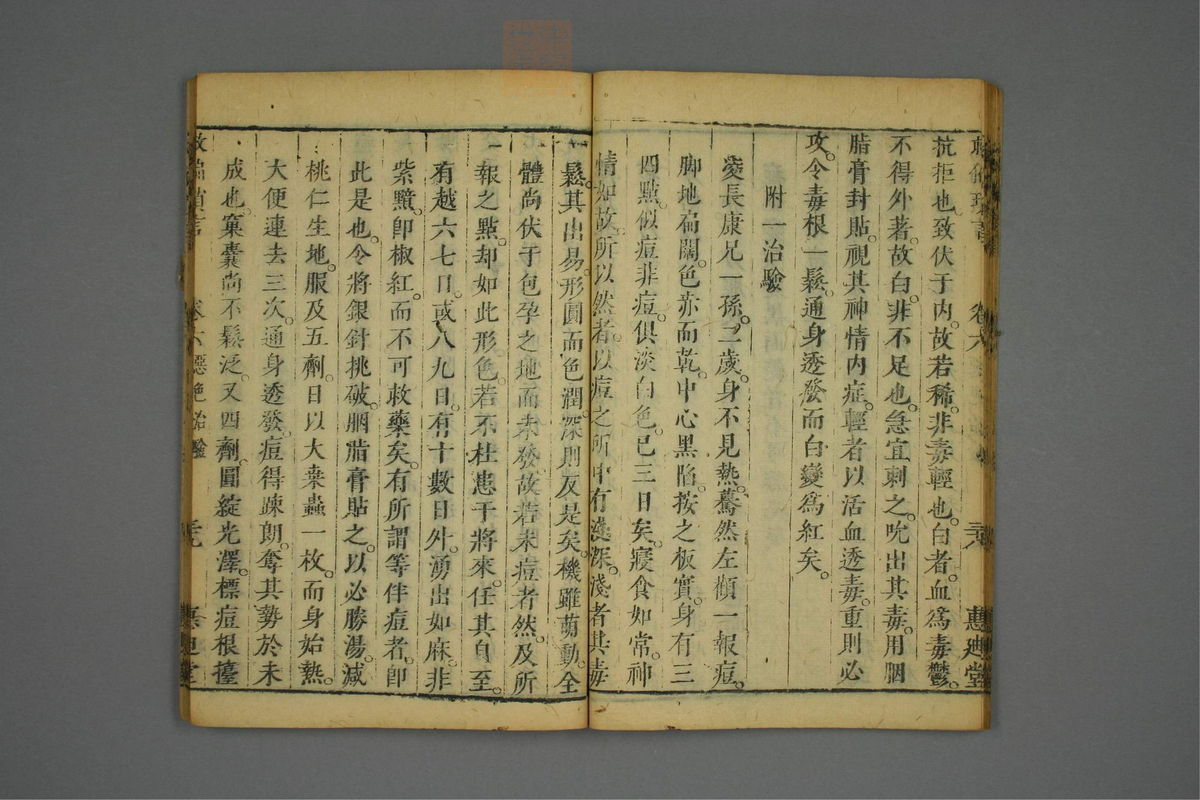 抗拒也致伏于内。故若稀。非毒輕也。白者。血爲毒鬱。
不得外著。故白。非不足也。急宜刺之。吮出其毒。用胭
脂膏封貼。視其神情内症。輕者以活血透毒。重則必
攻。令毒根一鬆。通身透發而白變爲紅矣。
附一治驗
凌長康兄一孫。二歲。身不見熱。驀然左顴一報痘。
脚地扁闊。色赤而乾。中心黑陷。按之板實。身有三
四點。似痘非痘。俱淡白色。已三日矣。寢食如常。神
情如故。所以然者。以痘之所中有淺深。淺者其毒
鬆。其出易。形圓而色潤。深則反是矣。機雖萌動。全
體尚伏于包孕之地而未發。故若未痘者然。及所
一報之點。却如此形色。若不杜患于將來。任其自至。
有越六七日。或八九日。有十數日外。湧出如麻。非
紫黯。卽椒紅。而不可救藥矣。有所謂等伴痘者。卽
此是也。令將銀針挑破。胭脂膏貼之。以必勝湯。減
桃仁生地。服及五劑。日以大桒蟲一枚。而身始熱。
大便連去三次。通身透發。痘得疎朗。奪其勢於未
成也。窠囊尚不鬆泛。又四劑。圓綻光澤。標痘根擡
卷六 惡絶治驗